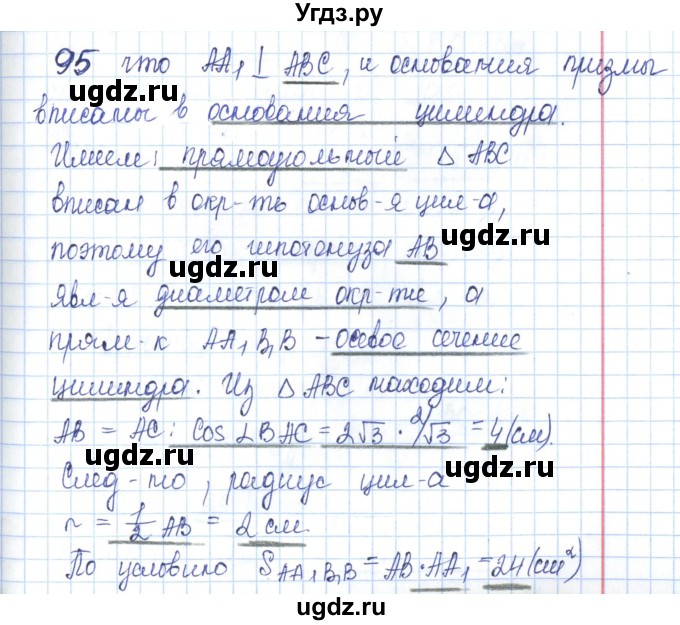 Угдз.ру
95 что AA₁ ⊥ ABC, и основания призмы
ugdz.ru ugdz.ru
вписаны в основания цилиндра.
Имеем: прямоугольный Δ ABC
вписан в окр-ть основ-я цил-а,
поэтому его гипотенуза AB
ugdz.ru
явл-я диаметром окр-ти, а
прям-к AA₁B₁B – осевое сечение
цилиндра. Из Δ ABC находим:
AB = AC : cos ∠BAC = 2√3 · 2/√3 = 4 (см).
ugdz.ru ugdz.ru
След-но, радиус цил-а
r = 1/2 AB = 2 см.
По условию S AA₁B₁B = AB · AA₁ = 24 (см²)
ugdz.ru